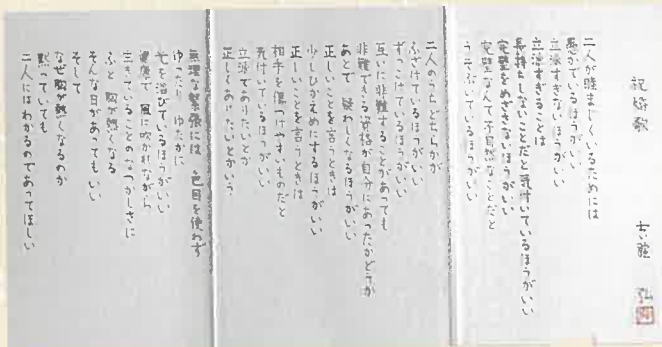 祝婚歌
吉野 弘
二人が睦まじくいるためには
愚かでいるほうがいい
立派すぎないほうがいい
立派すぎることは
長持ちしないことだと気付いているほうがいい
完璧をめざさないほうがいい
完璧なんて不自然なことだと
うそぶいているほうがいい
二人のうちどちらかが
ふざけているほうがいい
ずっこけているほうがいい
互いに非難することがあっても
非難できる資格が自分にあったかどうか
あとで 疑わしくなるほうがいい
正しいことを言うときは
少しひかえめにするほうがいい
正しいことを言うときは
相手を傷つけやすいものだと
気付いているほうがいい
立派でありたいとか
正しくありたいとかいう
無理な緊張には 色目を使わず
ゆったり ゆたかに
光を浴びているほうがいい
健康で 風に吹かれながら
生きていることのなつかしさに
ふと 胸が熱くなる
そんな日があってもいい
そして
なぜ胸が熱くなるのか
黙っていても
二人にはわかるのであってほしい